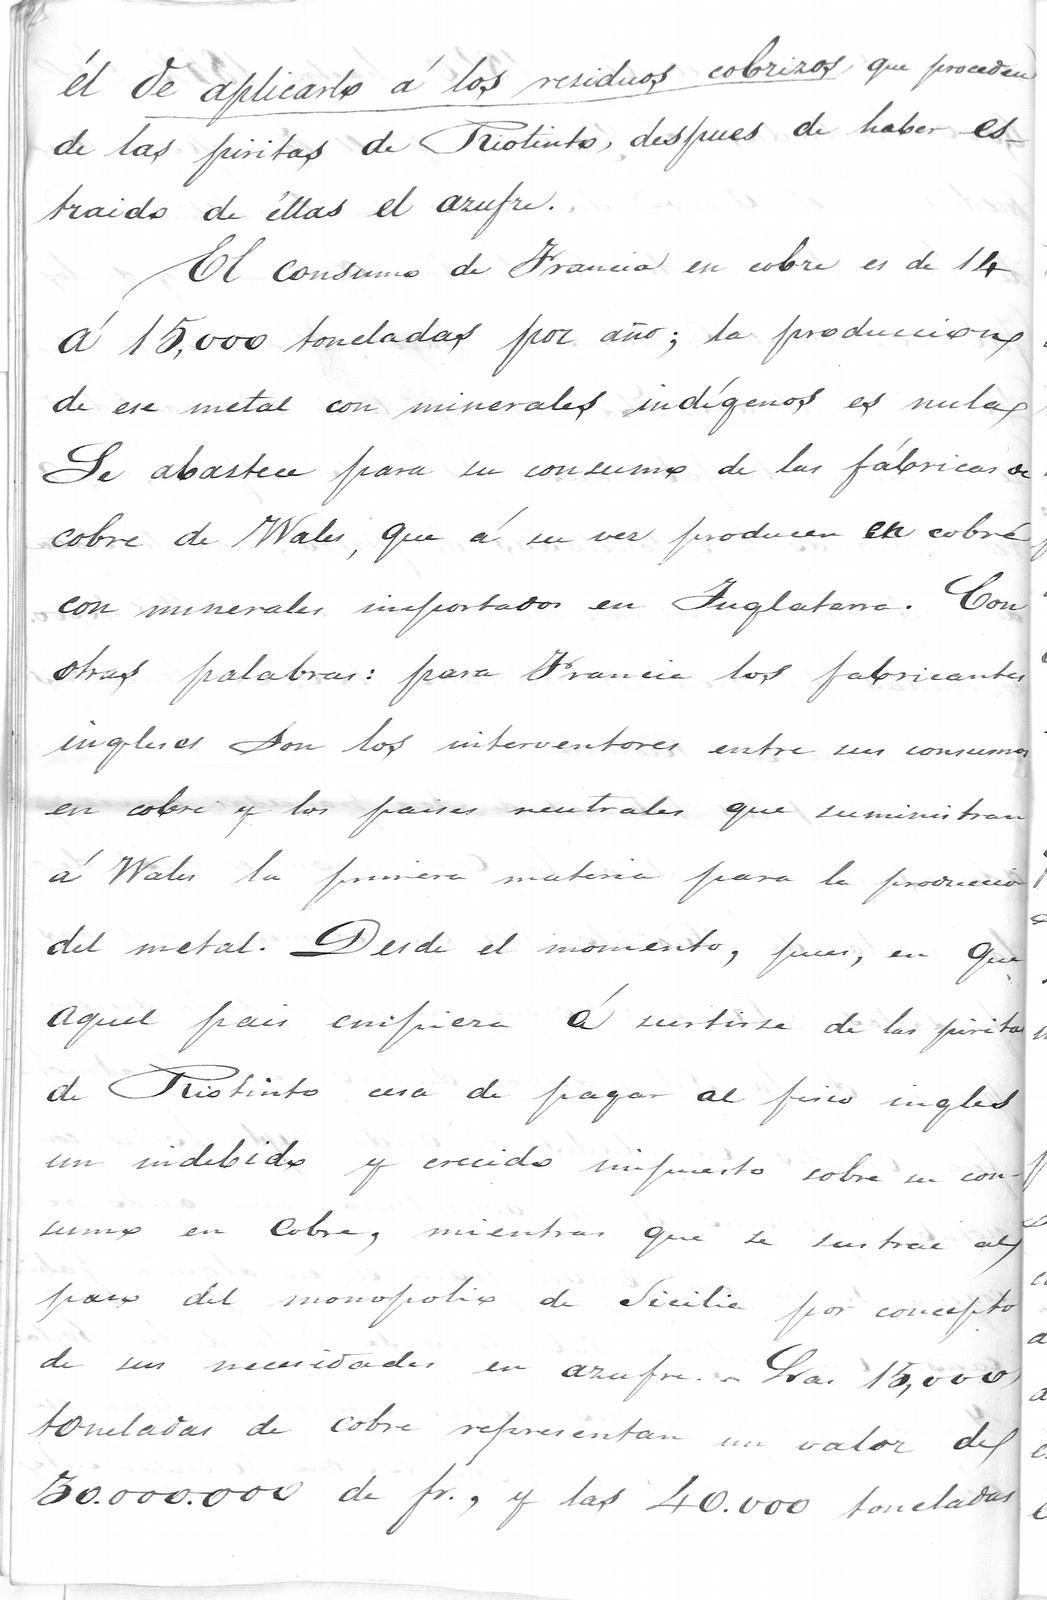 él de aplicarlo á los residuos cobrizos que proceden
de las piritas de Riotinto, despues de haber es-
traido de éllas el azufre.
El consumo de Francia en cobre es de 14
á 15,000 toneladas por año; la produccion
de ese metal con minerales indígenos es nula
Se abastece para su consumo de las fábricas de
cobre de Wales, que á su vez producen en cobre
con minerales importados en Inglaterra. Con
otras palabras: para Francia los fabricantes
ingleses son los interventores entre sus consumos
en cobre y los paises neutrales que suministran
á Wales la primera materia para la produccio
del metal. Desde el momento, pues, en que
aquel pais empieza á surtirse de las piritas
de Riotinto cesa de pagar al fisco ingles
un indebido y crecido impuesto sobre su con-
sumo en cobre, mientras que se sustrae al
paso del monopolio de Sicilia por concepto
de sus necesidades en azufre. - Las 15,000
toneladas de cobre representan un valor de
30.000.000 de fr., y las 40.000 toneladas